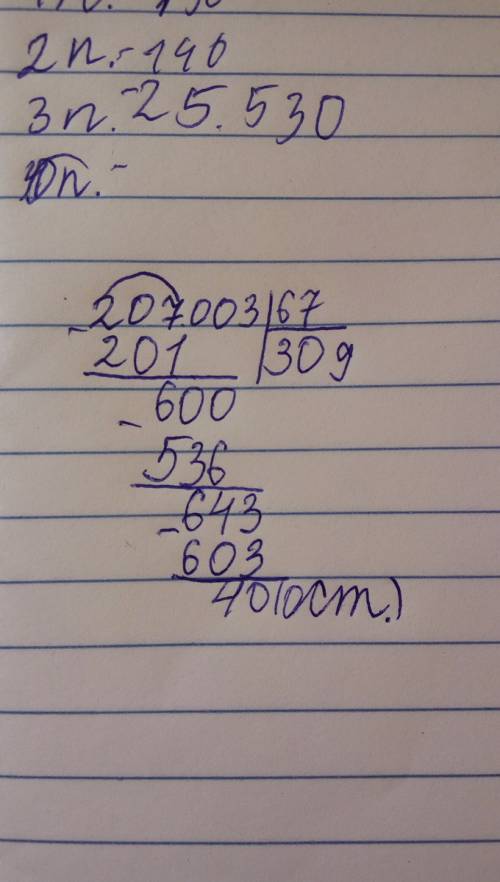 2п.-140
3п.-25.530
207003|67
-201 |309
-600
536
-643
603
40(ост.)